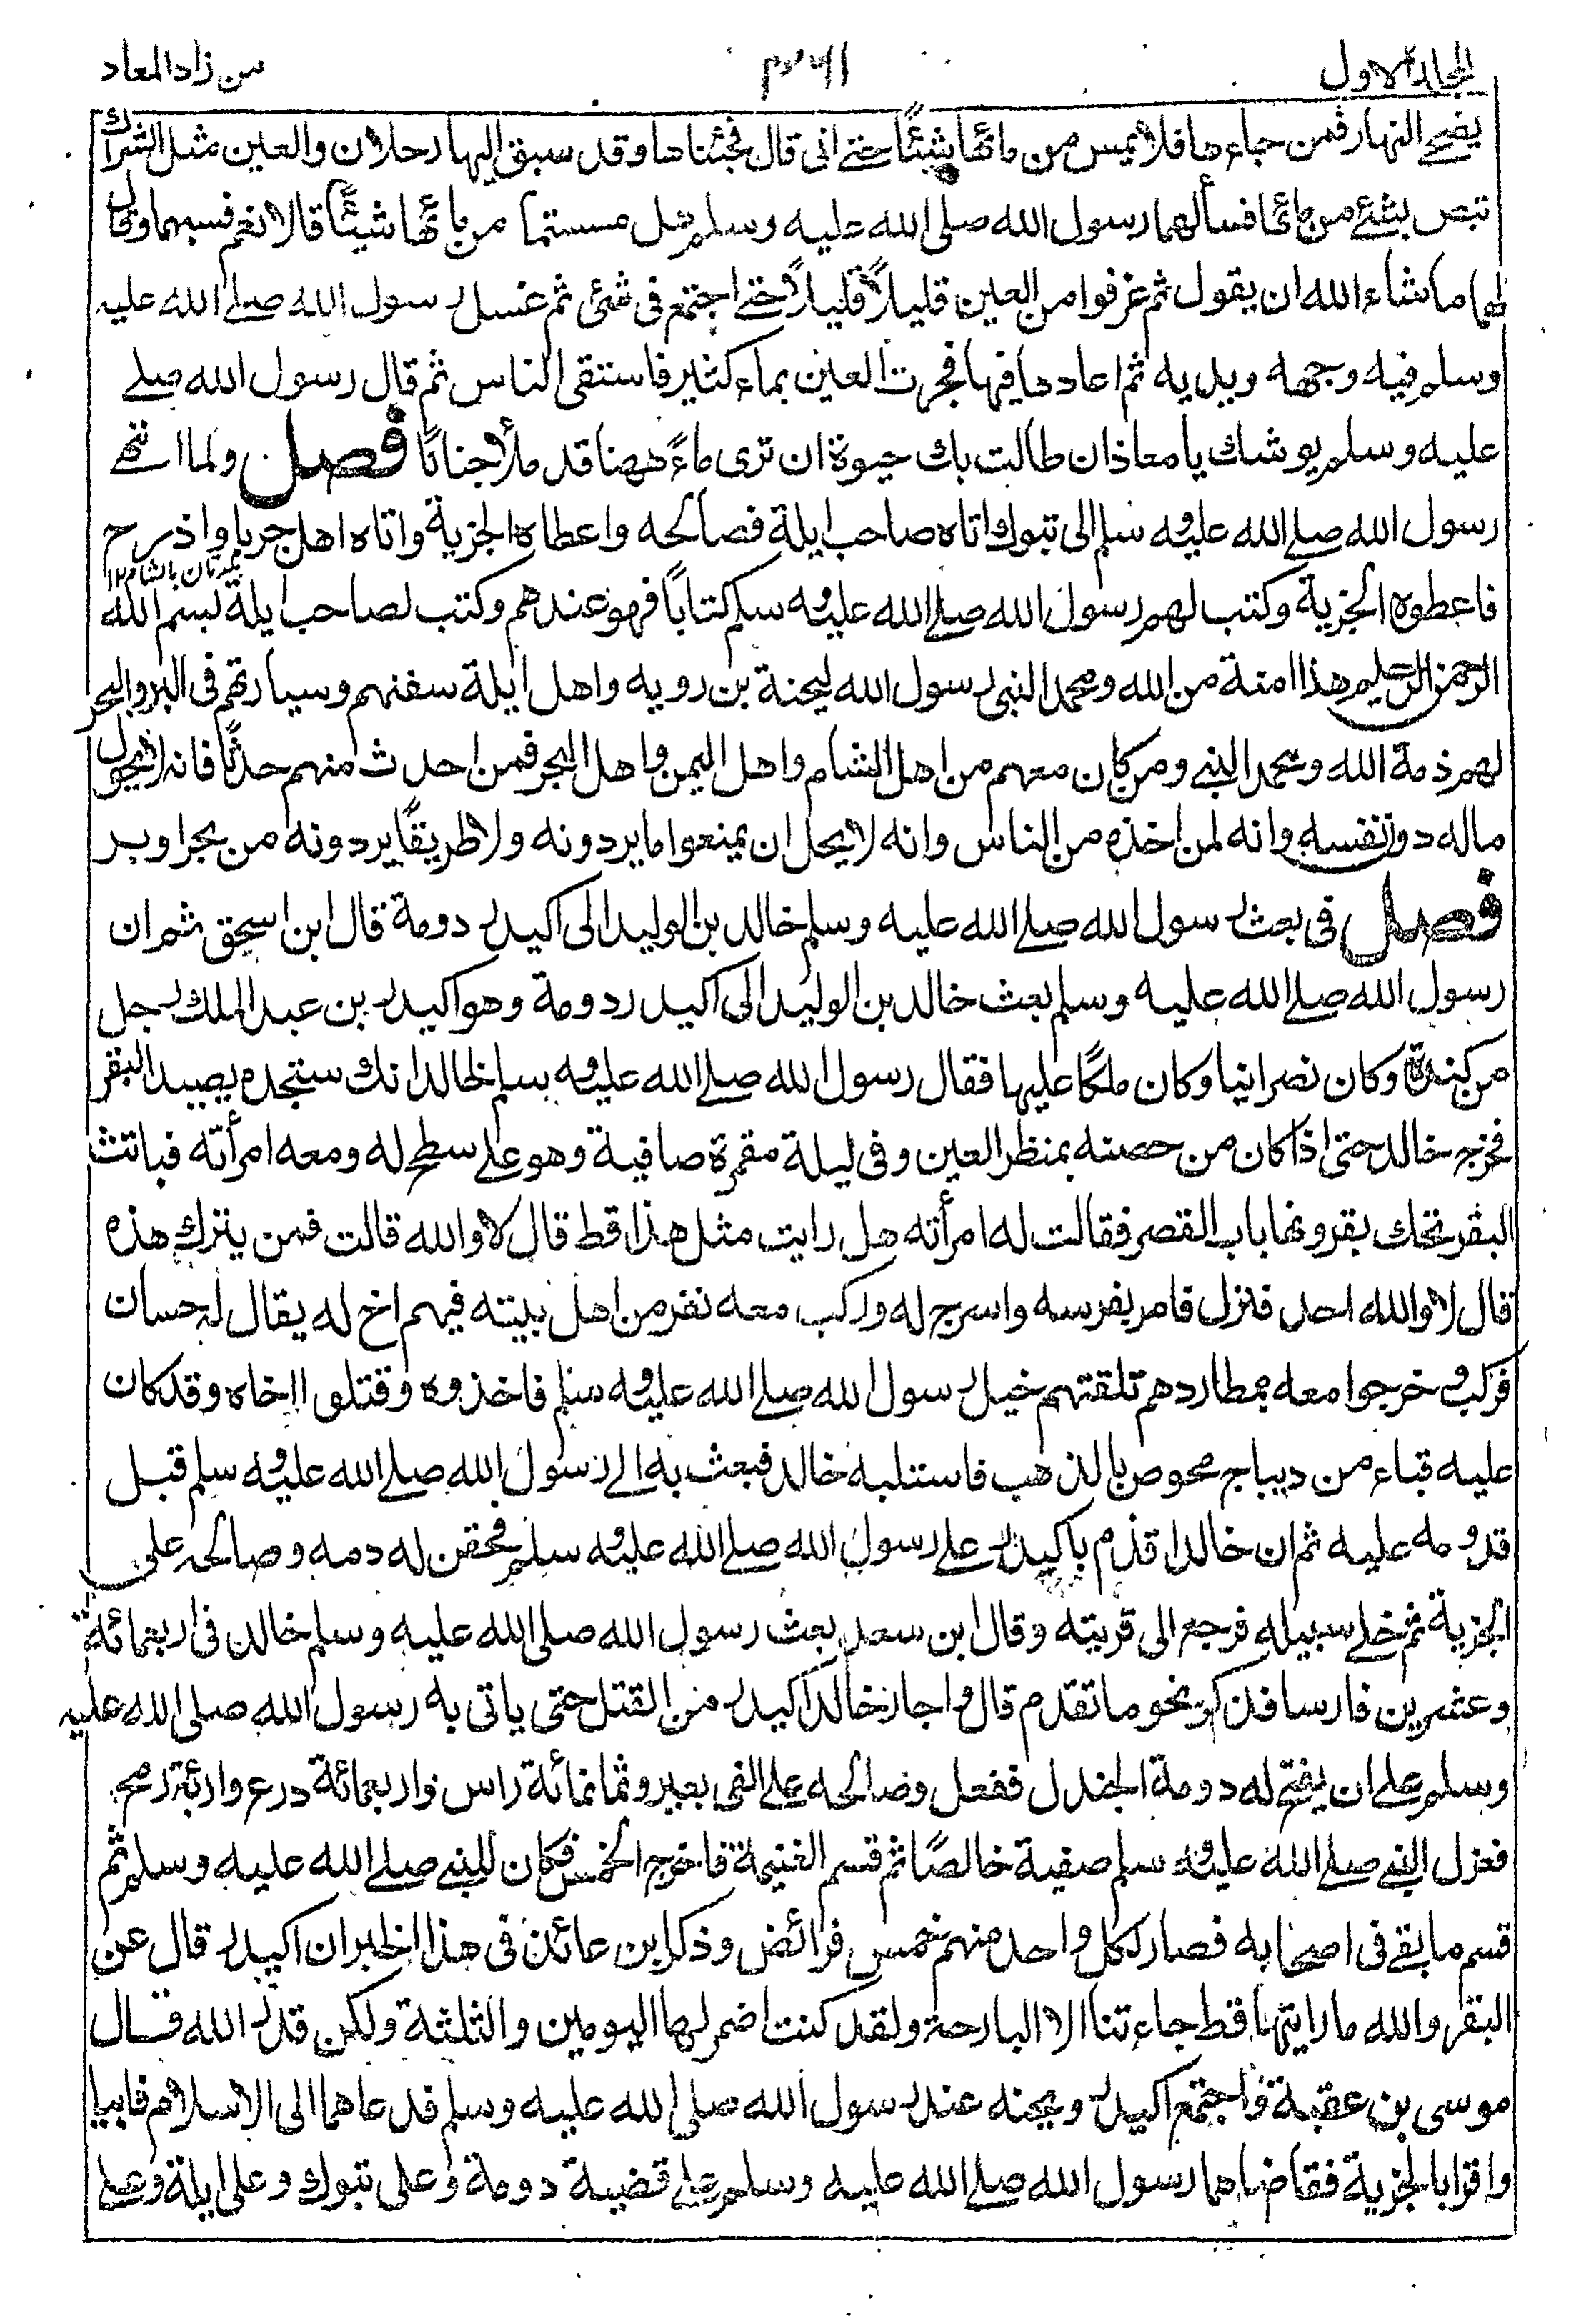 المجلد الاول
من زاد المعاد
يضحى النهار فمن جاءها فلا يمس من مائها شيئًا حتى اتى قال فجئناها وقد سبق اليها رجلان والعين مثل الشراك
تبص بشئ من مائها فسألهما رسول الله صلى الله عليه وسلم هل مسستما من مائها شيئًا قالا نعم فسبهما وقال
لهما ماشاء الله ان يقول ثم غرفوا من العين قليلاً قليلاً حتى اجتمع فى شئ ثم غسل رسول الله صلى الله عليه
وسلم فيه وجهه ويديه ثم اعادها فيها فجرت العين بماء كثير فاستقى الناس ثم قال رسول الله صلى
عليه وسلم يوشك يا معاذ ان طالت بك حيوة ان ترى ماءً ههنا قد ملأ جنانًا فصل ولما انتهى
رسول الله صلى الله عليه وسلم الى تبوك اتاه صاحب ايلة فصالحه واعطاه الجزية واتاه اهل جربا واذرح
بلدتان بالشام ١٢
فاعطوه الجزية وكتب لهم رسول الله صلى الله عليه وسلم كتابًا فهو عندهم وكتب لصاحب ايلة بسم الله
الرحمن الرحيم هذا امنة من الله ومحمد النبى رسول الله ليحنة بن روبه واهل ايلة سفنهم وسيارتهم فى البر والبحر
لهم ذمة الله ومحمد النبى ومن كان معهم من اهل الشام واهل اليمن واهل البحر فمن احدث منهم حدثًا فانه لا يحول
ماله دون نفسه وانه لمن اخذه من الناس وانه لا يحل ان يمنعوا ما يردونه ولا طريقًا يردونه من بحر او بر
فصل فى بعث رسول الله صلى الله عليه وسلم خالد بن الوليد الى اكيدر دومة قال ابن اسحق ثم ان
رسول الله صلى الله عليه وسلم بعث خالد بن الوليد الى اكيدر دومة وهو اكيدر بن عبد الملك رجل
من كندة وكان نصرانيا وكان ملكًا عليها فقال رسول الله صلى الله عليه وسلم لخالد انك ستجده يصيد البقر
فخرج خالد حتى اذا كان من حصنه بمنظر العين وفى ليلة مقمرة صافية وهو على سطح له ومعه امرأته فباتت
البقر تحك بقرونها باب القصر فقالت له امرأته هل رايت مثل هذا قط قال لا والله قالت فمن يترك هذه
قال لا والله احد فنزل فامر بفرسه واسرج له وركب معه نفر من اهل بيته فيهم اخ له يقال له حسان
فركب وخرجوا معه بمطاردهم تلقتهم خيل رسول الله صلى الله عليه وسلم فاخذوه وقتلوا اخاه وقد كان
عليه قباء من ديباج مخوص بالذهب فاستلبه خالد فبعث به الى رسول الله صلى الله عليه وسلم قبل
قدومه عليه ثم ان خالدا قدم باكيدر على رسول الله صلى الله عليه وسلم فحقن له دمه وصالحه على
الجزية ثم خلى سبيله فرجع الى قريته وقال ابن سعد بعث رسول الله صلى الله عليه وسلم خالد فى اربعمائة
وعشرين فارسا فذكر نحو ما تقدم قال واجار خالد اكيدر من القتل حتى ياتى به رسول الله صلى الله عليه
وسلم على ان يفتح له دومة الجندل ففعل وصالحه على الفى بعير وثمانمائة راس واربعمائة درع واربعمائة رمح
فعزل النبى صلى الله عليه وسلم صفية خالصًا ثم قسم الغنيمة فاخرج الخمس فكان للنبى صلى الله عليه وسلم ثم
قسم ما بقى فى اصحابه فصار لكل واحد منهم خمس فرائض وذكر ابن عائذ فى هذا الخبر ان اكيدر قال عن
البقر والله ما رايتها قط جاءتنا الا البارحة ولقد كنت اضمر لها اليومين والثلثة ولكن قدر الله قال
موسى بن عقبة واجتمع اكيدر ويحنه عند رسول الله صلى الله عليه وسلم فدعاهما الى الاسلام فابيا
واقرا بالجزية فقاضاهما رسول الله صلى الله عليه وسلم على قضية دومة وعلى تبوك وعلى ايلة وعلى